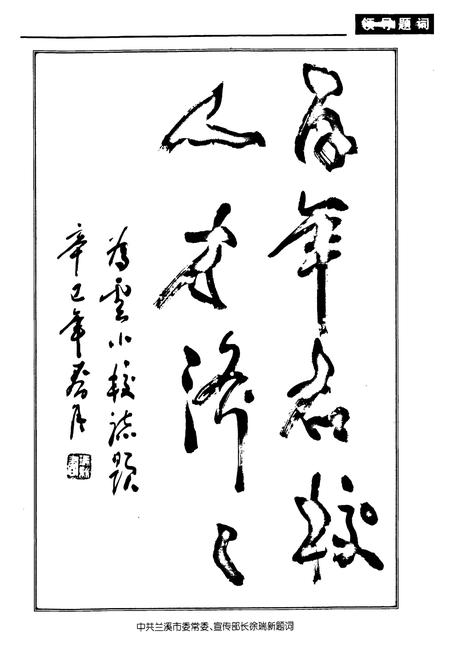 领导题词
百年名校
人才济々
為雲小校誌题
辛巳年春月
中共兰溪市委常委、宣传部长徐瑞新题词